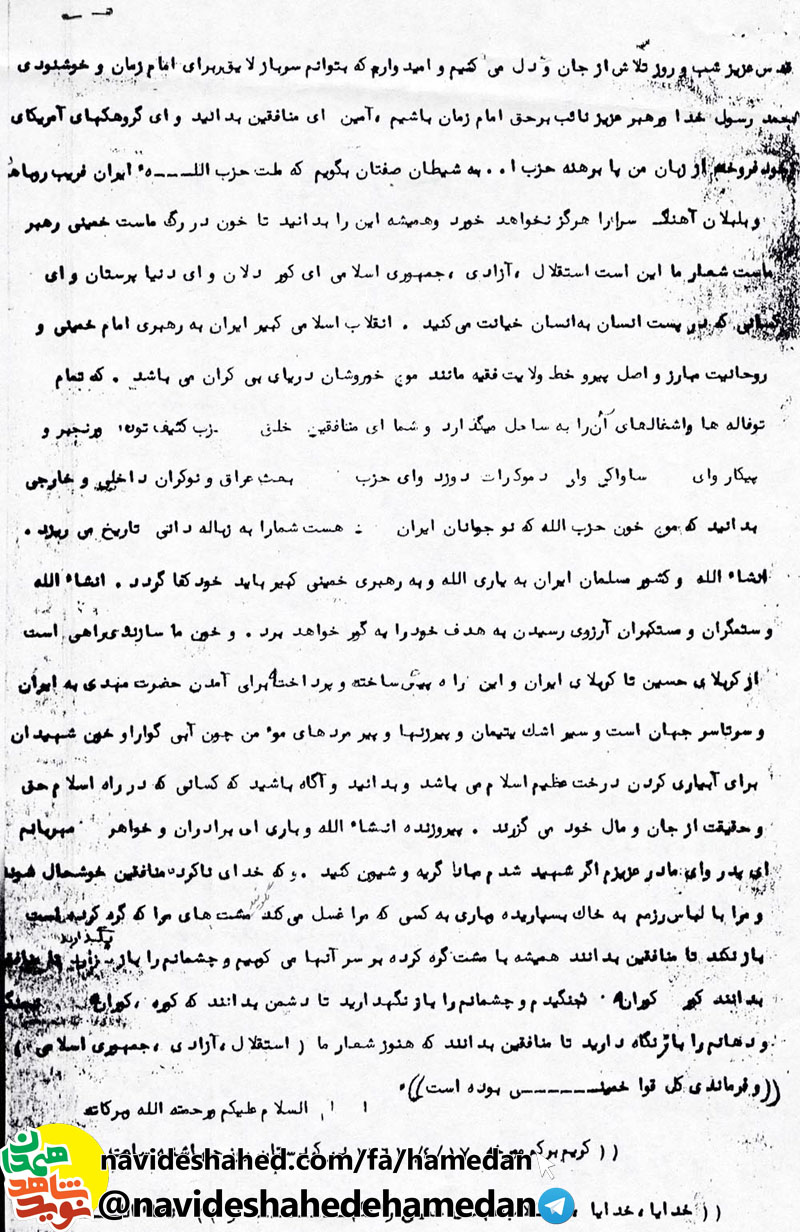 قدس عزیز شب و روز تلاش از جان و دل می کنیم و امیدواریم که بتوانیم سرباز لایق برای امام زمان و خوشنودی
محمد رسول خدا و رهبر عزیز نائب برحق امام زمان باشیم ،آمین ای منافقین بدانید و ای گروهکهای آمریکای
خود فروخته از زبان من پا برهنه حزب ا.. به شیطان صفتان بگویم که ملت حزب اللـــــه ایران فریب روباه
و بلبلان آهنگ سرا را هرگز نخواهد خورد وهمیشه این را بدانید تا خون در رگ ماست خمینی رهبر
ماست شعار ما این است استقلال ،آزادی ،جمهوری اسلامی ای کور دلان و ای دنیا پرستان و ای
کسانی که در پست انسان به انسان خیانت می کنید . انقلاب اسلامی کبیر ایران به رهبری امام خمینی و
روحانیت مبارز و اصل پیرو خط ولایت فقیه مانند موج خوروشان دریای بی کران می باشد . که تمام
توفاله ها واشغالهای آن را به ساحل میگذارد و شما ای منافقین خلق زب کثیف توده ورنجبر و
پیکار وای ساواکی وای دموکرات دوزد وای حزب بعث عراق و نوکران داخلی و خارجی
بدانید که موج خون حزب الله که نو جوانان ایران هست شمارا به زباله دانی تاریخ می ریزد .
انشاء الله و کشور مسلمان ایران به یاری الله و به رهبری خمینی کبیر باید خود کفا گردد . انشاء الله
و ستمگران و مستکبران آرزوی رسیدن به هدف خود را به گور خواهد برد . و خون ما سازنده راهی است
از کربلای حسین تا کربلای ایران و این راه پیش ساخته و پرداخته برای آمدن حضرت مهدی به ایران
و سرتاسر جهان است و سیر اشك یتیمان و پیرزنها و پیر مردهای موء من چون آبی گوارا و خون شهیدان
برای آبیاری کردن درخت عظیم اسلام می باشد وبدانید و آگاه باشید که کسانی که در راه اسلام حق
و حقیقت از جان و مال خود می گزرند . پیروزنده انشاء الله و باری ای برادران و خواهر مهربانم
ای پدر وای مادر عزیزم اگر شهید شدم مبادا گریه و شیون کنید . و که خدای ناکرده منافقین خوشحال شوند
و مرا با لباس رزمم به خاك بسپارید وباری به کسی که مرا غسل می کند مشت های مرا که گره کرده است
باز نکند تا منافقین بدانند همیشه با مشت گره کرده بر سر آنها می کوبیم و چشمانم را باز بگذارید
بدانند کور کورانه نجنگیدم و چشمانم را باز نگهدارید تا دشمن بدانند که کوره ،کورانه
و دهانم را باز نگاه دارید تا منافقین بدانند که هنوز شعار ما ( استقلال ،آزادی ،جمهوری اسلامی )
((و فرماندی کل قوا خمینـــــــی بوده است))
السلام علیکم ورحمته الله وبرکاته
(( کریم
navideshahed.com/fa/hamedan
(( خدایا ،خدایا ،
@navideshahedehamedan
نوید شاهد همدان